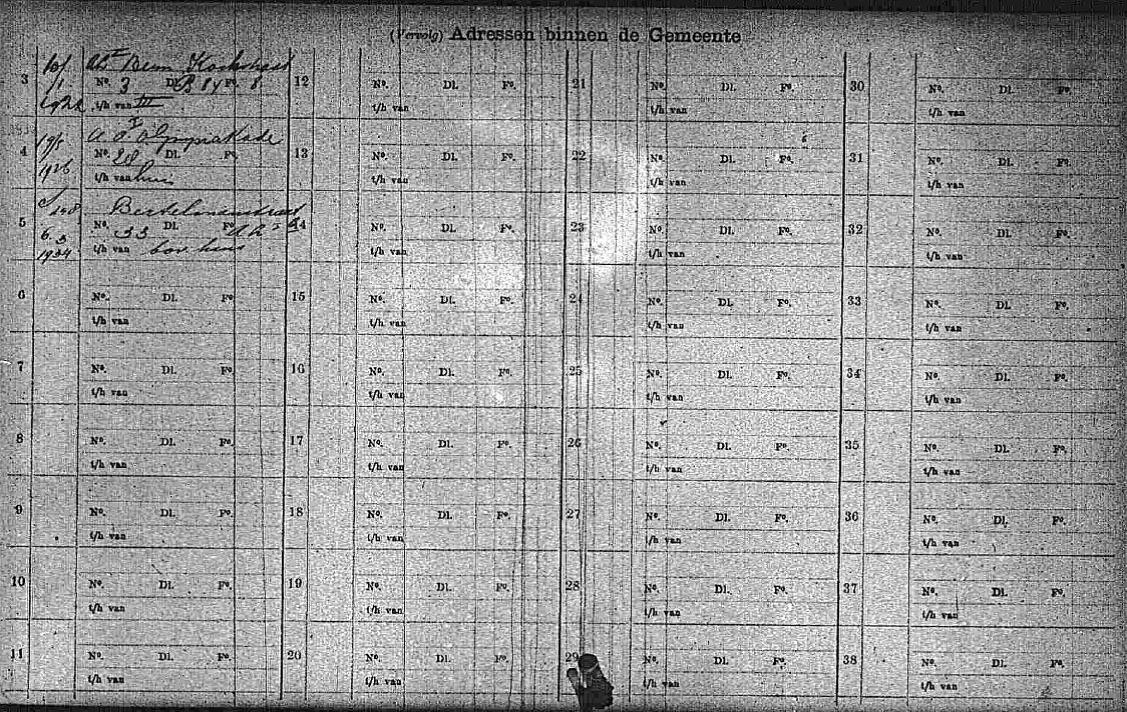 (Vervolg) Adressen binnen de Gemeente
3
No. 3 Dl. Fo. 8
1926 t/h van III
4
No. 28 Dl. Fo.
1926 t/h van huis
5
No. 33 Dl. Fo.
6.3
1934 t/h van bov. huis
6 No. Dl. Fo.
t/h van
7 No. Dl. Fo.
t/h van
8 No. Dl. Fo.
t/h van
9 No. Dl. Fo.
t/h van
10 No. Dl. Fo.
t/h van
11 No. Dl. Fo.
t/h van
12 No. Dl. Fo.
t/h van
13 No. Dl. Fo.
t/h van
14 No. Dl. Fo.
t/h van
15 No. Dl. Fo.
t/h van
16 No. Dl. Fo.
t/h van
17 No. Dl. Fo.
t/h van
18 No. Dl. Fo.
t/h van
19 No. Dl. Fo.
t/h van
20 No. Dl. Fo.
t/h van
21 No. Dl. Fo.
t/h van
22 No. Dl. Fo.
t/h van
23 No. Dl. Fo.
t/h van
24 No. Dl. Fo.
t/h van
25 No. Dl. Fo.
t/h van
26 No. Dl. Fo.
t/h van
27 No. Dl. Fo.
t/h van
28 No. Dl. Fo.
t/h van
29 No. Dl. Fo.
t/h van
30 No. Dl. Fo.
t/h van
31 No. Dl. Fo.
t/h van
32 No. Dl. Fo.
t/h van
33 No. Dl. Fo.
t/h van
34 No. Dl. Fo.
t/h van
35 No. Dl. Fo.
t/h van
36 No. Dl. Fo.
t/h van
37 No. Dl. Fo.
t/h van
38 No. Dl. Fo.
t/h van